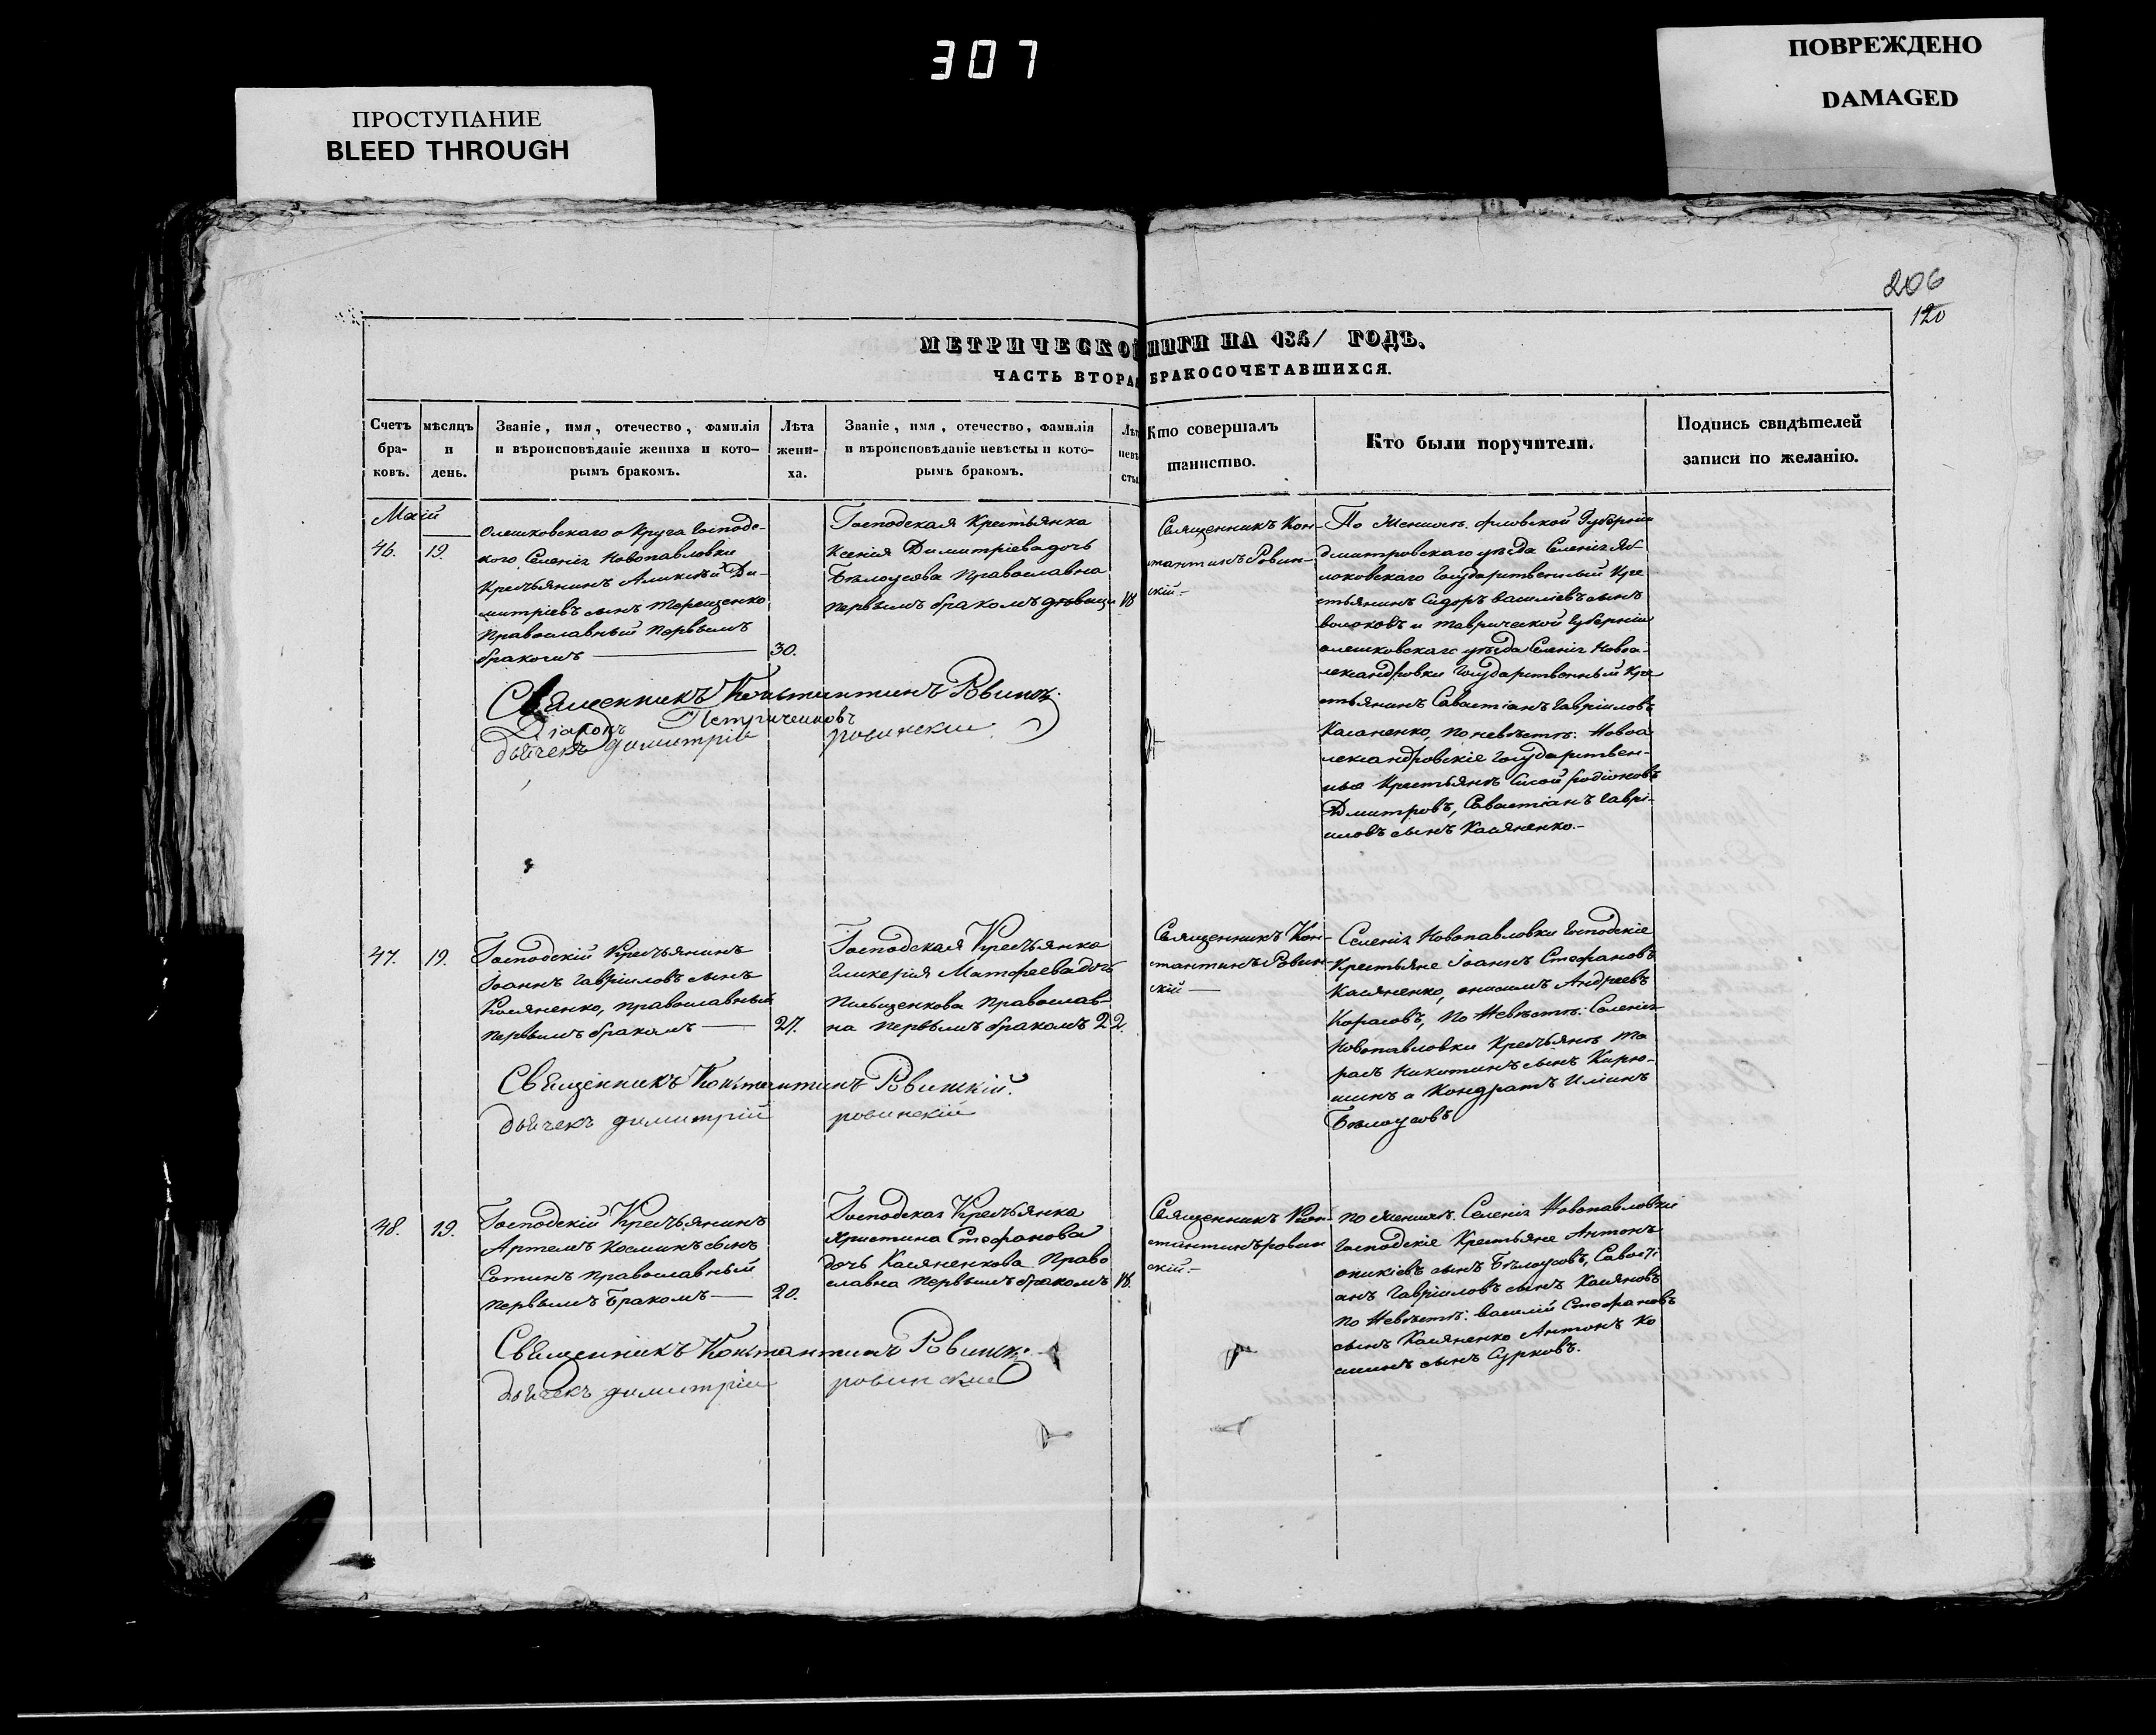 307
ПРОСТУПАНИЕ
BLEED THROUGH
ПОВРЕЖДЕНО
DAMAGED
206
120
МЕТРИЧЕСКОЙ
НИГИ НА 184/ ГОДЪ.
ЧАСТЬ ВТОРАЯ
БРАКОСОЧЕТАВШИХСЯ.
Счетъ бра-ковъ.
мѣсяцъ и день.
Званіе, имя, отечество, фамилія
и вѣроисповѣданіе жениха и кото-
рымъ бракомъ.
Лѣта жени-ха.
Званіе, имя, отечество, фамилія
и вѣроисповѣданіе невѣсты и кото-
рымъ бракомъ.
Лѣт невѣ сты
Кто совершалъ
таинство.
Кто были поручители.
Подпись свидѣтелей
записи по желанію.
Маій
46.
19.
Олешковскаго округа Господс-
кого Селенія Новопавловки
Кресьянинъ Аликсѣй Ди-
митріевъ сынъ Терещенко
Православный Первымъ
бракомъ
30.
Господская Крестьянка
Ксенія Димитріева дочь
Бѣлоусова Православна
Первымъ бракомъ девица
18
Священникъ Кон-
тантинъ Ровин-
скій
По Женихѣ. Орловской Губѣрніи
Дмитровскаго уѣзда Селенія Яб-
локовскаго Государственный Кре
стьянинъ Сидоръ Василіевъ сынъ
и Таврической Губерніи
Олешковскаго уѣзда Селенія Новоа-
лександровки Государственный Кре
стьянинъ Савастіанъ Гавріиловъ
Касяненко, По невѣстѣ: Новоа
лександровскіе Государствен-
ныя Крестьянѣ Сисой Родіоновъ
Дмитровъ, Савастіанъ Гаврі-
иловъ сынъ Касяненко.
Священникъ Констинтинъ Ровинск.
Діаконъ Петриченковъ
дьячекъ димитріи ровински
47.
19.
Господскій Кресьянинъ
Іоаннъ Гавріиловъ сынъ
Касяненко, православный
первымъ бракомъ
27.
Господская Кресьянка
Гликерія Матфеева дочь
Пильщенкова Православ-
на первымъ бракомъ
22.
Священникъ Кон-
тантинъ Ровин-
скій
Селенія Новопавловки Господскіе
Крестьяне Іоаннъ Стефановъ
Касяненко, онисимъ Андреевъ
Карасовъ, По Невѣстѣ: Селенія
Новопавловки Кресьянѣ Та
расъ Никитинъ сынъ Кирю-
шинъ а Кондратъ Илиинъ
Бѣлоусовъ
Священникъ Константинъ Ровинскій.
дьячекъ димитрій ровинскій
48.
19.
Господскій Кресьянинъ
Артемъ Косминъ сынъ
Сотинъ православный
первымъ Бракомъ
20.
Господская Кресьянка
Христина Стефанова
дочь Касяненкова Право
славна первымъ бракомъ
18.
Священникъ Кон-
тантинъ ровин
скій
По женихѣ. Селенія Новопавловки
Господскіе Крестьяне Антонъ
оникіевъ сынъ Бѣлоусовъ, Савасті
анъ Гавріиловъ сынъ Касяновъ
По Невѣстѣ: Василій Стефановъ
сынъ Касяненко Антонъ Ко
сминъ сынъ Сурковъ.
Священникъ Константинъ Ровински
дьячекъ димитріи ровински